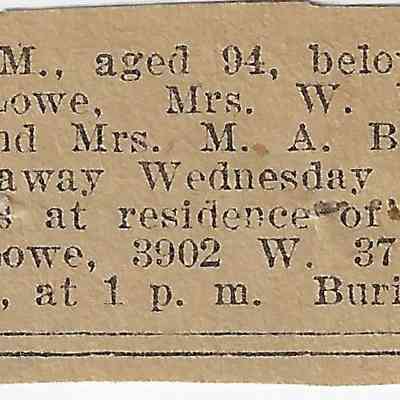 M., aged 94, belov
Lowe, Mrs. W.
nd Mrs. M. A. B
away Wednesday
s at residence of
Lowe, 3902 W. 37
, at 1 p. m. Buri